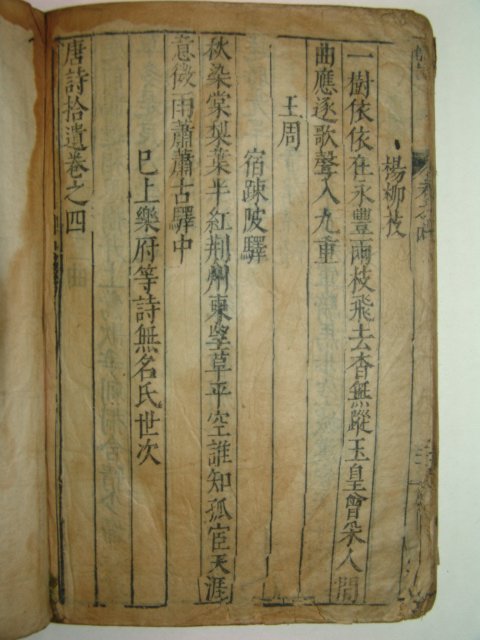 楊柳枝
一樹依依在永豐兩枝飛去杳無蹤玉皇曾采人間
曲應逐歌聲入九重
王周
宿疎陂驛
秋染棠梨葉半紅荊州東望草平空誰知孤宦天涯
意微雨蕭蕭古驛中
已上樂府等詩無名氏世次
唐詩拾遺卷之四